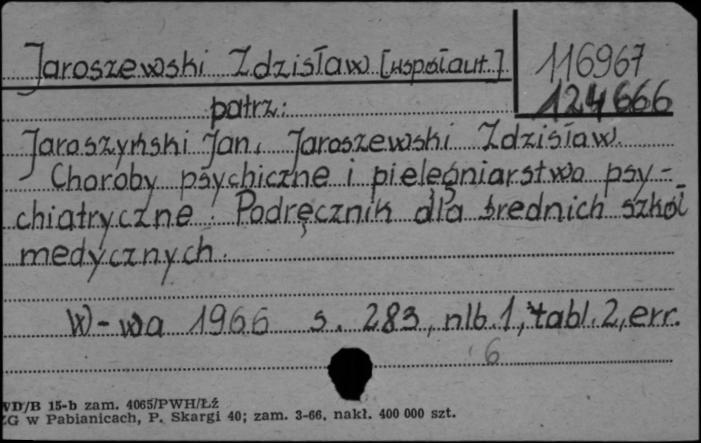 Jaroszewski Zdzisław [współaut.] 116967
patrz: 124666
Jaroszyński Jan, Jaroszewski Zdzisław.
Choroby psychiczne i pielęgniarstwo psy-
chiatryczne. Podręcznik dla średnich szkół
medycznych.
W-wa 1966 s. 283, nlb. 1, tabl. 2, err.
6
WD/B 15-b zam. 4065/PWH/Łź
ZG w Pabianicach, P. Skargi 40; zam. 3-66, nakł. 400 000 szt.